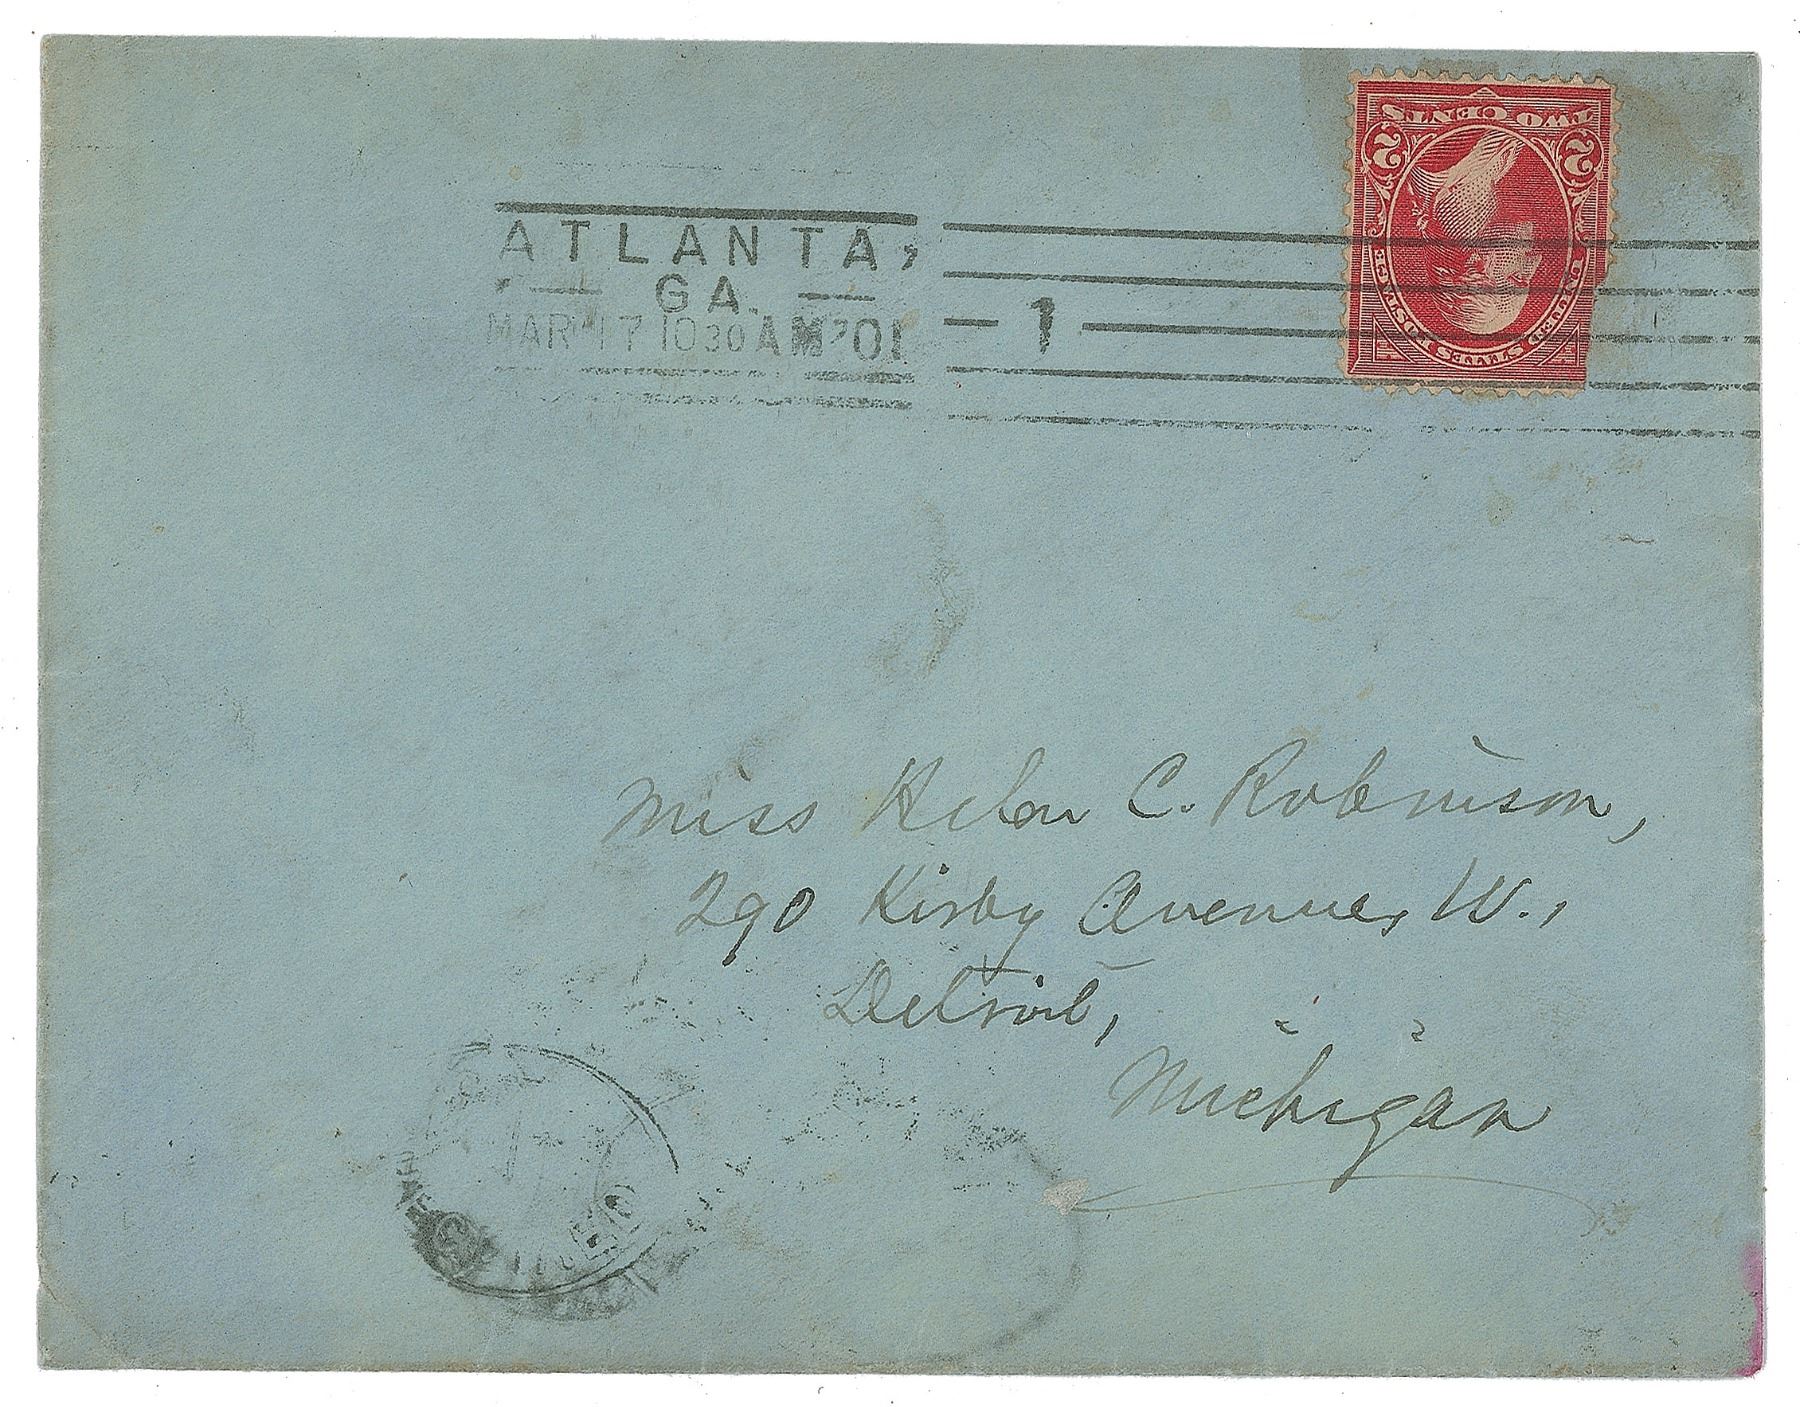 TWO CENTS
2 2
UNITED STATES POSTAGE
ATLANTA,
GA.
MAR 17 10 30 AM '01
1
Miss Helen C. Robinson,
290 Kirby Avenue, W.,
Detroit,
Michigan